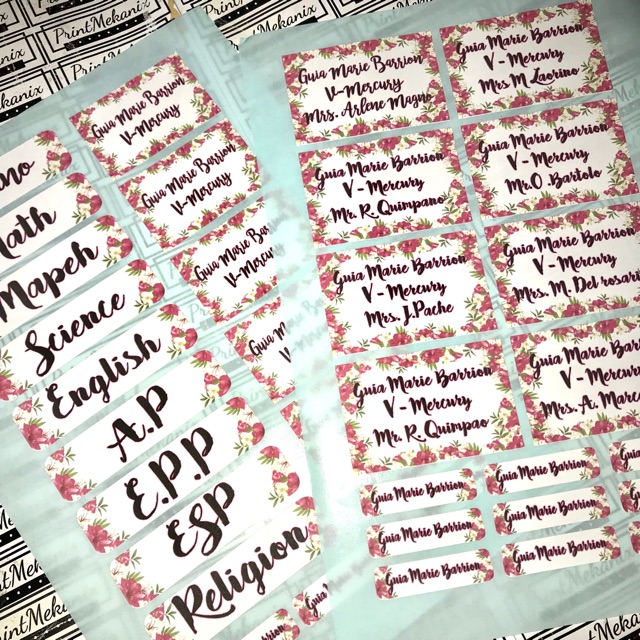 PrintMekanix
Math
Mapeh
Science
English
A.P
E.P.P
ESP
Religion
Guia Marie Barrion
V-Mercury
Guia Marie Barrion
V-Mercury
Guia Marie
V-Mercury
Guia Marie Barrion
V-Mercury
Mrs. Arlene Magno
Guia Marie Barrion
V - Mercury
Mrs M Laorino
Guia Marie Barrion
V - Mercury
Mr. R. Quimpano
Guia Marie Barrion
V - Mercury
Mr.O .Bartolo
Guia Marie Barrion
V - Mercury
Mrs. J.Pache
Guia Marie Barrion
V - Mercury
Mrs. M. Del rosario
Guia Marie Barrion
V - Mercury
Mr. R. Quimpao
Guia Marie
V - Mercury
Mrs. A.
Guia Marie Barrion
Guia Marie Barrion
Guia Marie Barrion
Guia Marie Barrion
Guia Marie Barrion
Guia Marie Barrion
PrintMekanix